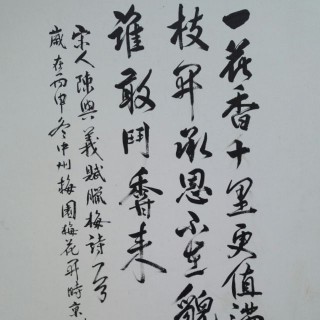 一花香十里更值滿
枝開承恩不在貌
誰敢鬥香來
宋人陳與義賦臘梅詩一首
歲在丙申冬中州梅園梅花開時京